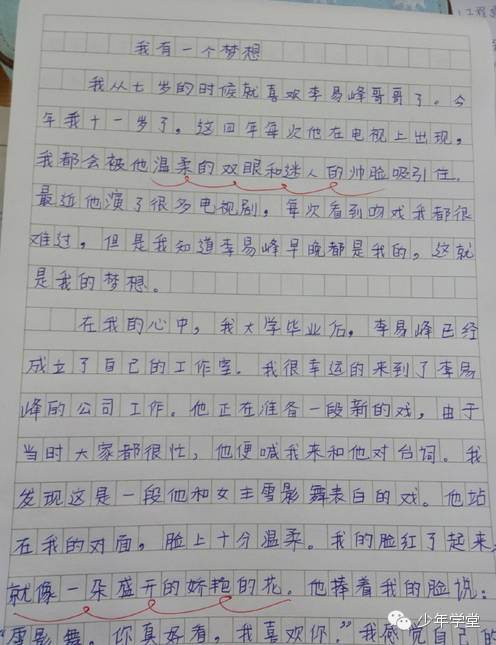 我有一个梦想
我从七岁的时候就喜欢李易峰哥哥了。今
年我十一岁了。这四年每次他在电视上出现，
我都会被他温柔的双眼和迷人的帅脸吸引住。
最近他演了很多电视剧，每次看到吻戏我都很
难过，但是我知道李易峰早晚都是我的，这就
是我的梦想。
在我的心中，我大学毕业后，李易峰已经
成立了自己的工作室。我很幸运的来到了李易
峰的公司工作。他正在准备一段新的戏，由于
当时大家都很忙，他便喊我来和他对台词。我
发现这是一段他和女主雪影舞表白的戏。他站
在我的对面，脸上十分温柔。我的脸红了起来，
就像一朵盛开的娇艳的花。他捧着我的脸说：
“雪影舞，你真好看，我喜欢你。”我感觉自己的
少年学堂